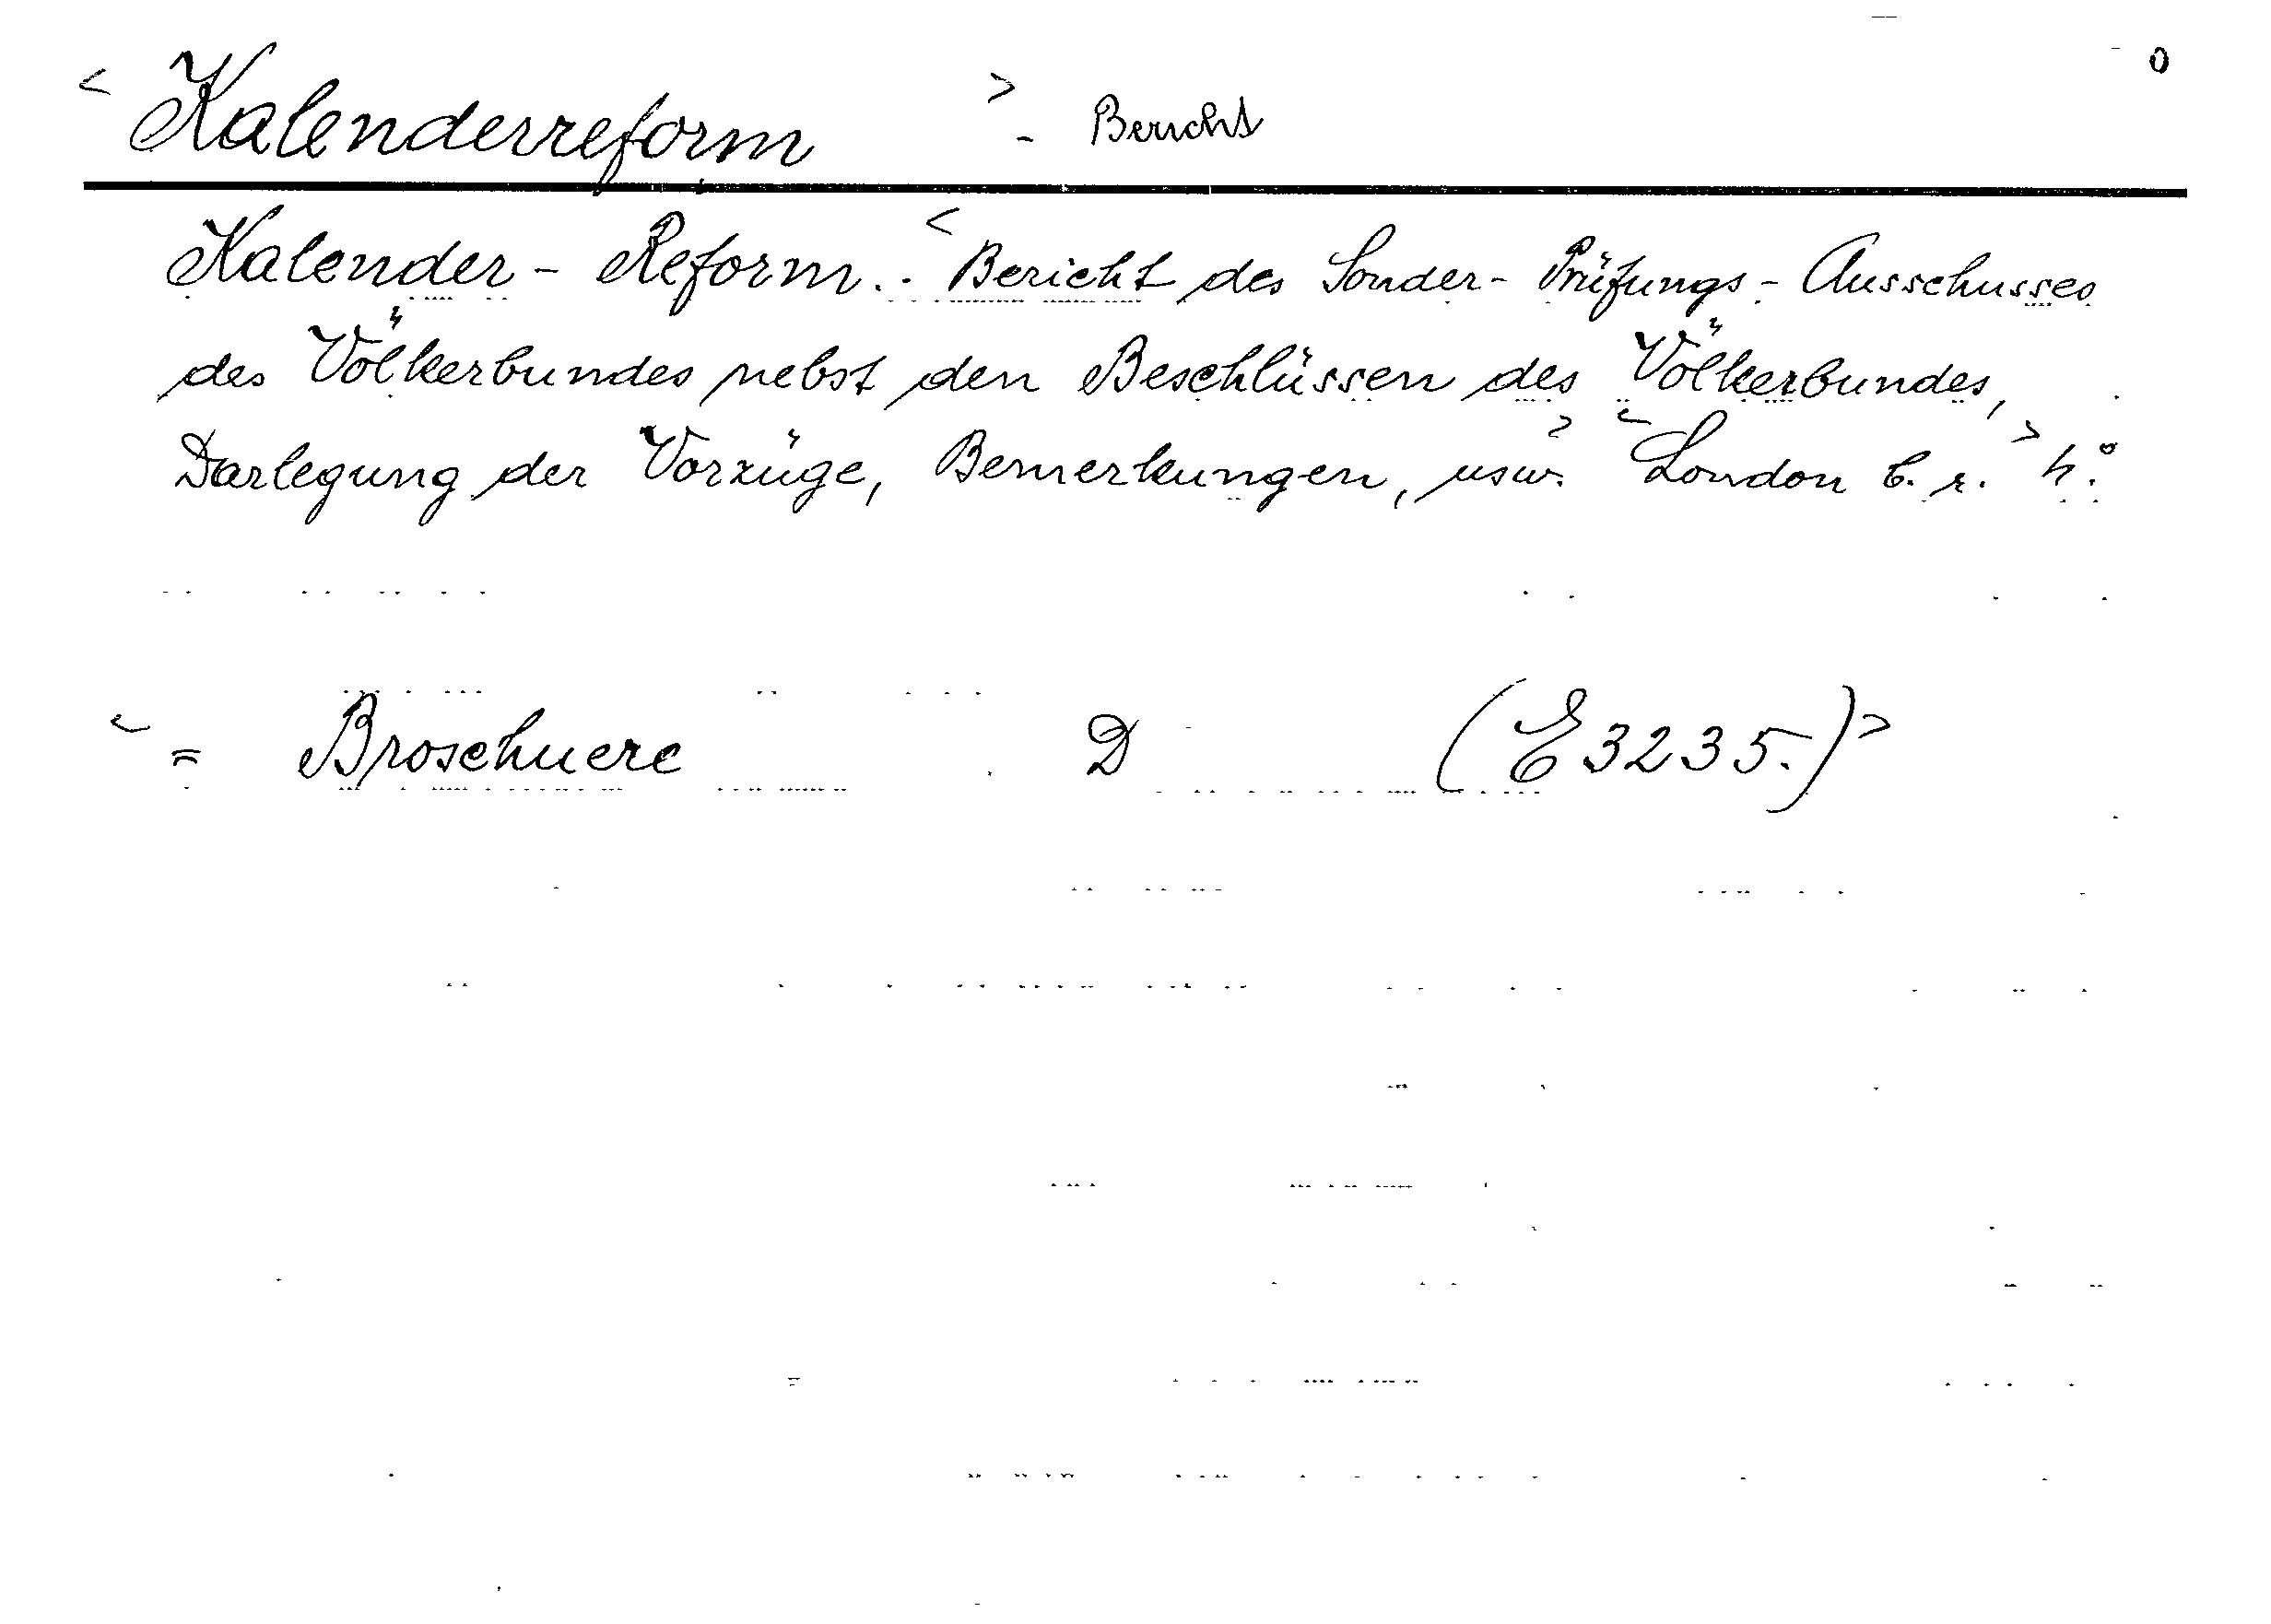 0
< Kalenderreform > - Bericht
Kalender - Reform. . < Bericht des Sonder - Prüfungs - Ausschusses
des Völkerbundes nebst den Beschlüssen des Völkerbundes,
Darlegung der Vorzüge, Bemerkungen, usw. > < London b. r. > 4°.
< = Broschuere D (E 3235.) >